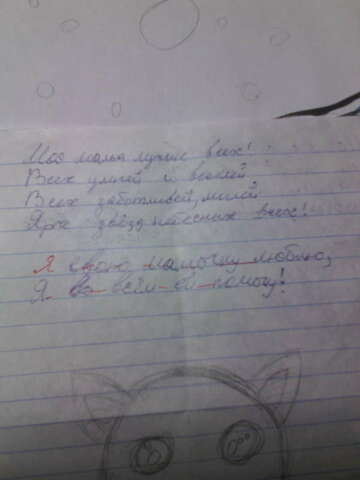 Моя мама лучше всех!
Всех умней и веселей
Всех заботливей, милей
Ярче звёзд небесних всех!
Я свою мамочку люблю,
Я во всём ей помогу!